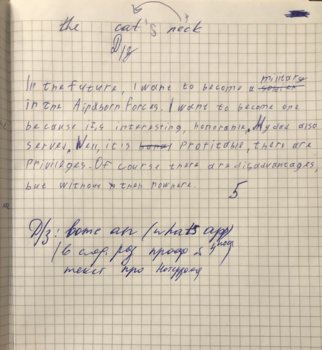 the cat's neck
D/z
In the future, I want to become a military
in the Airdborn Forces. I want to become one
because it's interesting, honorable, My dad also
served, Well, it is profitable, there are
privileges. Of course there are disadvantages,
but without then nowhere.
5
D/z: вотс ап (whats app)
текст про